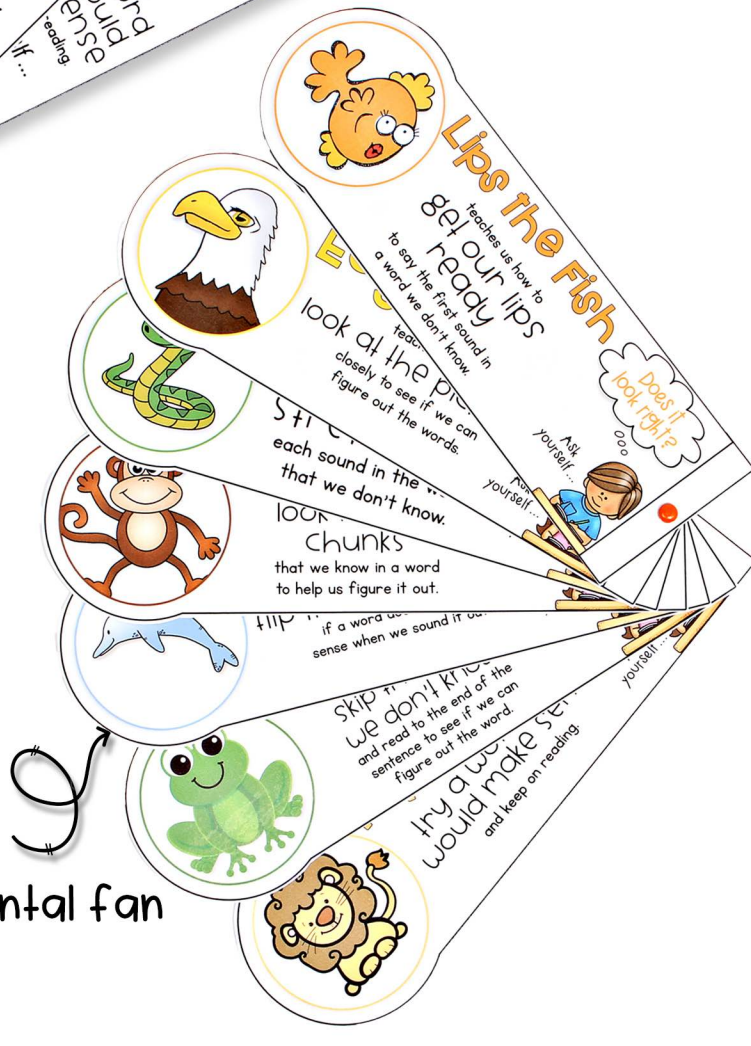 ould
ense
eading.
lf ...
Lips the Fish
teaches us how to
get our lips
ready
to say the first sound in
a word we don't know.
Does it
look right?
Ask
yourself...
look at the pic
closely to see if we can
figure out the words.
yourself...
each sound in the w
that we don't know.
look
chunks
that we know in a word
to help us figure it out.
flip
if a word
sense when we sound it ou
skip
we don't kn
and read to the end of the
sentence to see if we can
figure out the word.
yourself...
try a wo
would make se
and keep on reading.
ntal fan